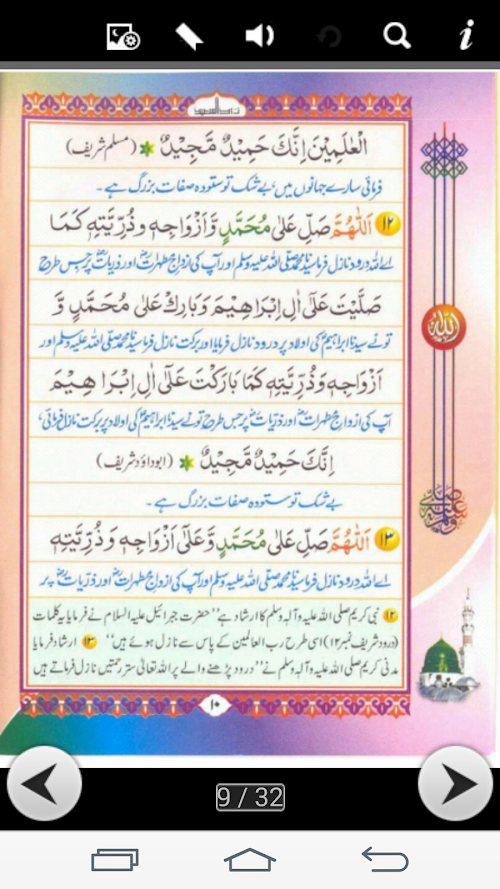 الْعٰلَمِيْنَ اِنَّكَ حَمِيْدٌ مَّجِيْدٌ (مسلم شریف)
فرمائی سارے جہانوں میں، بے شک تو ستودہ صفات بزرگ ہے۔
۱۲ اَللّٰهُمَّ صَلِّ عَلٰى مُحَمَّدٍ وَّ اَزْوَاجِهٖ وَ ذُرِّيَّتِهٖ كَمَا
اے اللہ درود نازل فرما سیدنا محمد صلی اللہ علیہ وسلم اور آپ کی ازواج مطہراتؓ اور ذریاتؓ پر جس طرح
صَلَّيْتَ عَلٰٓى اٰلِ اِبْرَاهِيْمَ وَ بَارِكْ عَلٰى مُحَمَّدٍ وَّ
تو نے سیدنا ابراہیمؑ کی اولاد پر درود نازل فرمایا اور برکت نازل فرما سیدنا محمد صلی اللہ علیہ وسلم اور
اَزْوَاجِهٖ وَ ذُرِّيَّتِهٖ كَمَا بَارَكْتَ عَلٰٓى اٰلِ اِبْرَاهِيْمَ
آپ کی ازواج مطہراتؓ اور ذریاتؓ پر جس طرح تو نے سیدنا ابراہیمؑ کی اولاد پر برکت نازل فرمائی،
اِنَّكَ حَمِيْدٌ مَّجِيْدٌ (ابوداؤد شریف)
بے شک تو ستودہ صفات بزرگ ہے۔
۱۳ اَللّٰهُمَّ صَلِّ عَلٰى مُحَمَّدٍ وَّ عَلٰٓى اَزْوَاجِهٖ وَ ذُرِّيَّتِهٖ
اے اللہ درود نازل فرما سیدنا محمد صلی اللہ علیہ وسلم اور آپ کی ازواج مطہراتؓ اور ذریاتؓ پر
۱۲ نبی کریم صلی اللہ علیہ وآلہ وسلم کا ارشاد ہے ”حضرت جبرائیل علیہ السلام نے فرمایا یہ کلمات
(درود شریف نمبر ۱۲) اسی طرح رب العالمین کے پاس سے نازل ہوئے ہیں“ ۱۳ ارشاد فرمایا
مدنی کریم صلی اللہ علیہ وآلہ وسلم نے ”درود پڑھنے والے پر اللہ تعالیٰ ستر رحمتیں نازل فرماتے ہیں
۱۰
الله
9 / 32